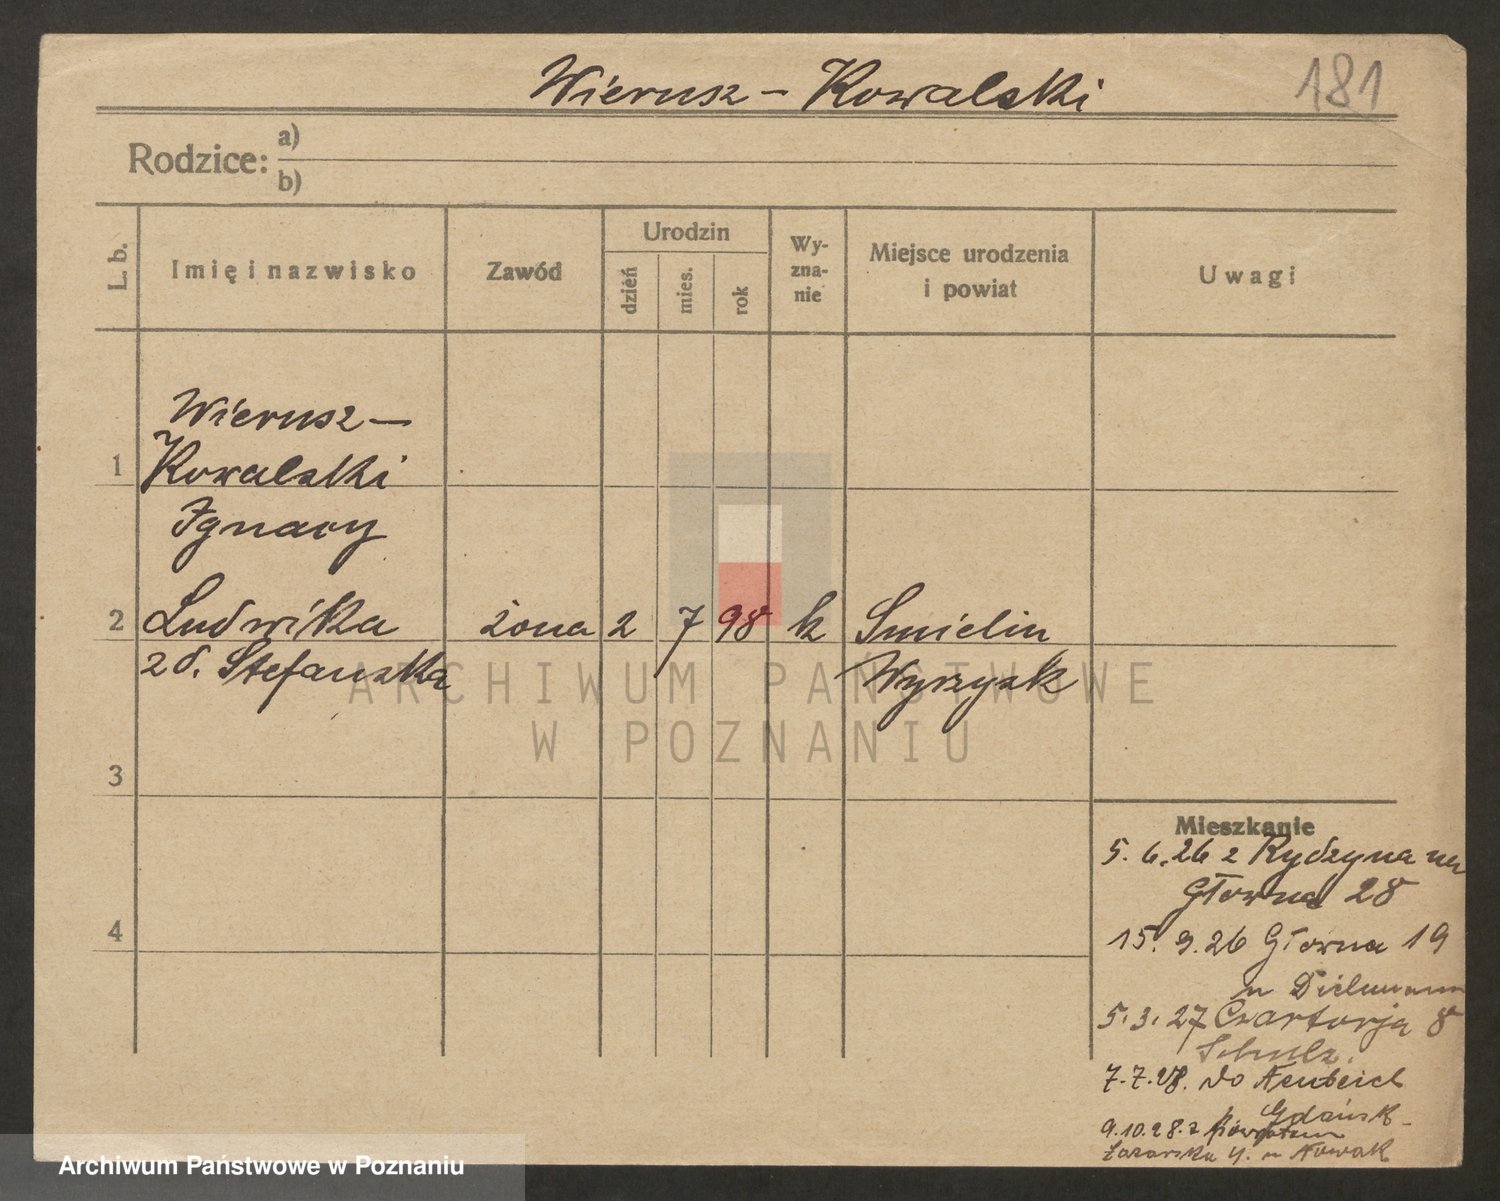 Wierusz - Kowalski
181
Rodzice: a)
b)
L. b.
Imię i nazwisko
Zawód
Urodzin
dzień
mies.
rok
Wy-
zna-
nie
Miejsce urodzenia
i powiat
Uwagi
1
Wierusz-
Kowalski
Ignacy
2 Ludwika żona 2 7 98 k Smielin
zd. Stefanska Wyrzysk
ARCHIWUM PAŃSTWOWE
W POZNANIU
3
4
Mieszkanie
5. 6. 26 z Rydzyna na
Głowna 28
15. 9. 26 Głowna 19
u Dielmann
5. 3. 27 Czartorja 8
Schulz.
7. 7. 28. do Neuteich
Gdańsk
9. 10. 28. z
4. u Nowak
Archiwum Państwowe w Poznaniu